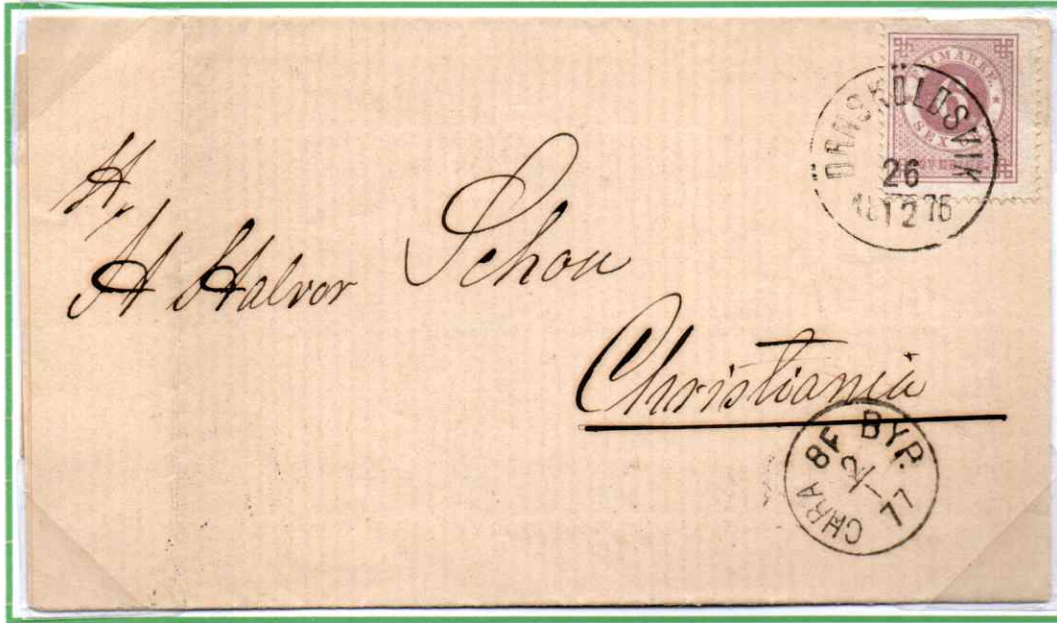 FRIMÄRKE
6
SEX
ÖRNSKÖLDSVIK
26
12
18 76
Hr
H Halvor Schou
Christiania
CHRA 8F BYP.
2/1
77